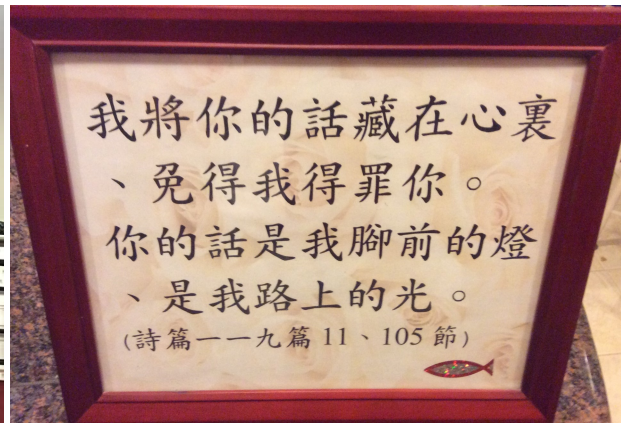 我將你的話藏在心裏
、免得我得罪你。
你的話是我腳前的燈
、是我路上的光。
(詩篇一一九篇 11、105 節)